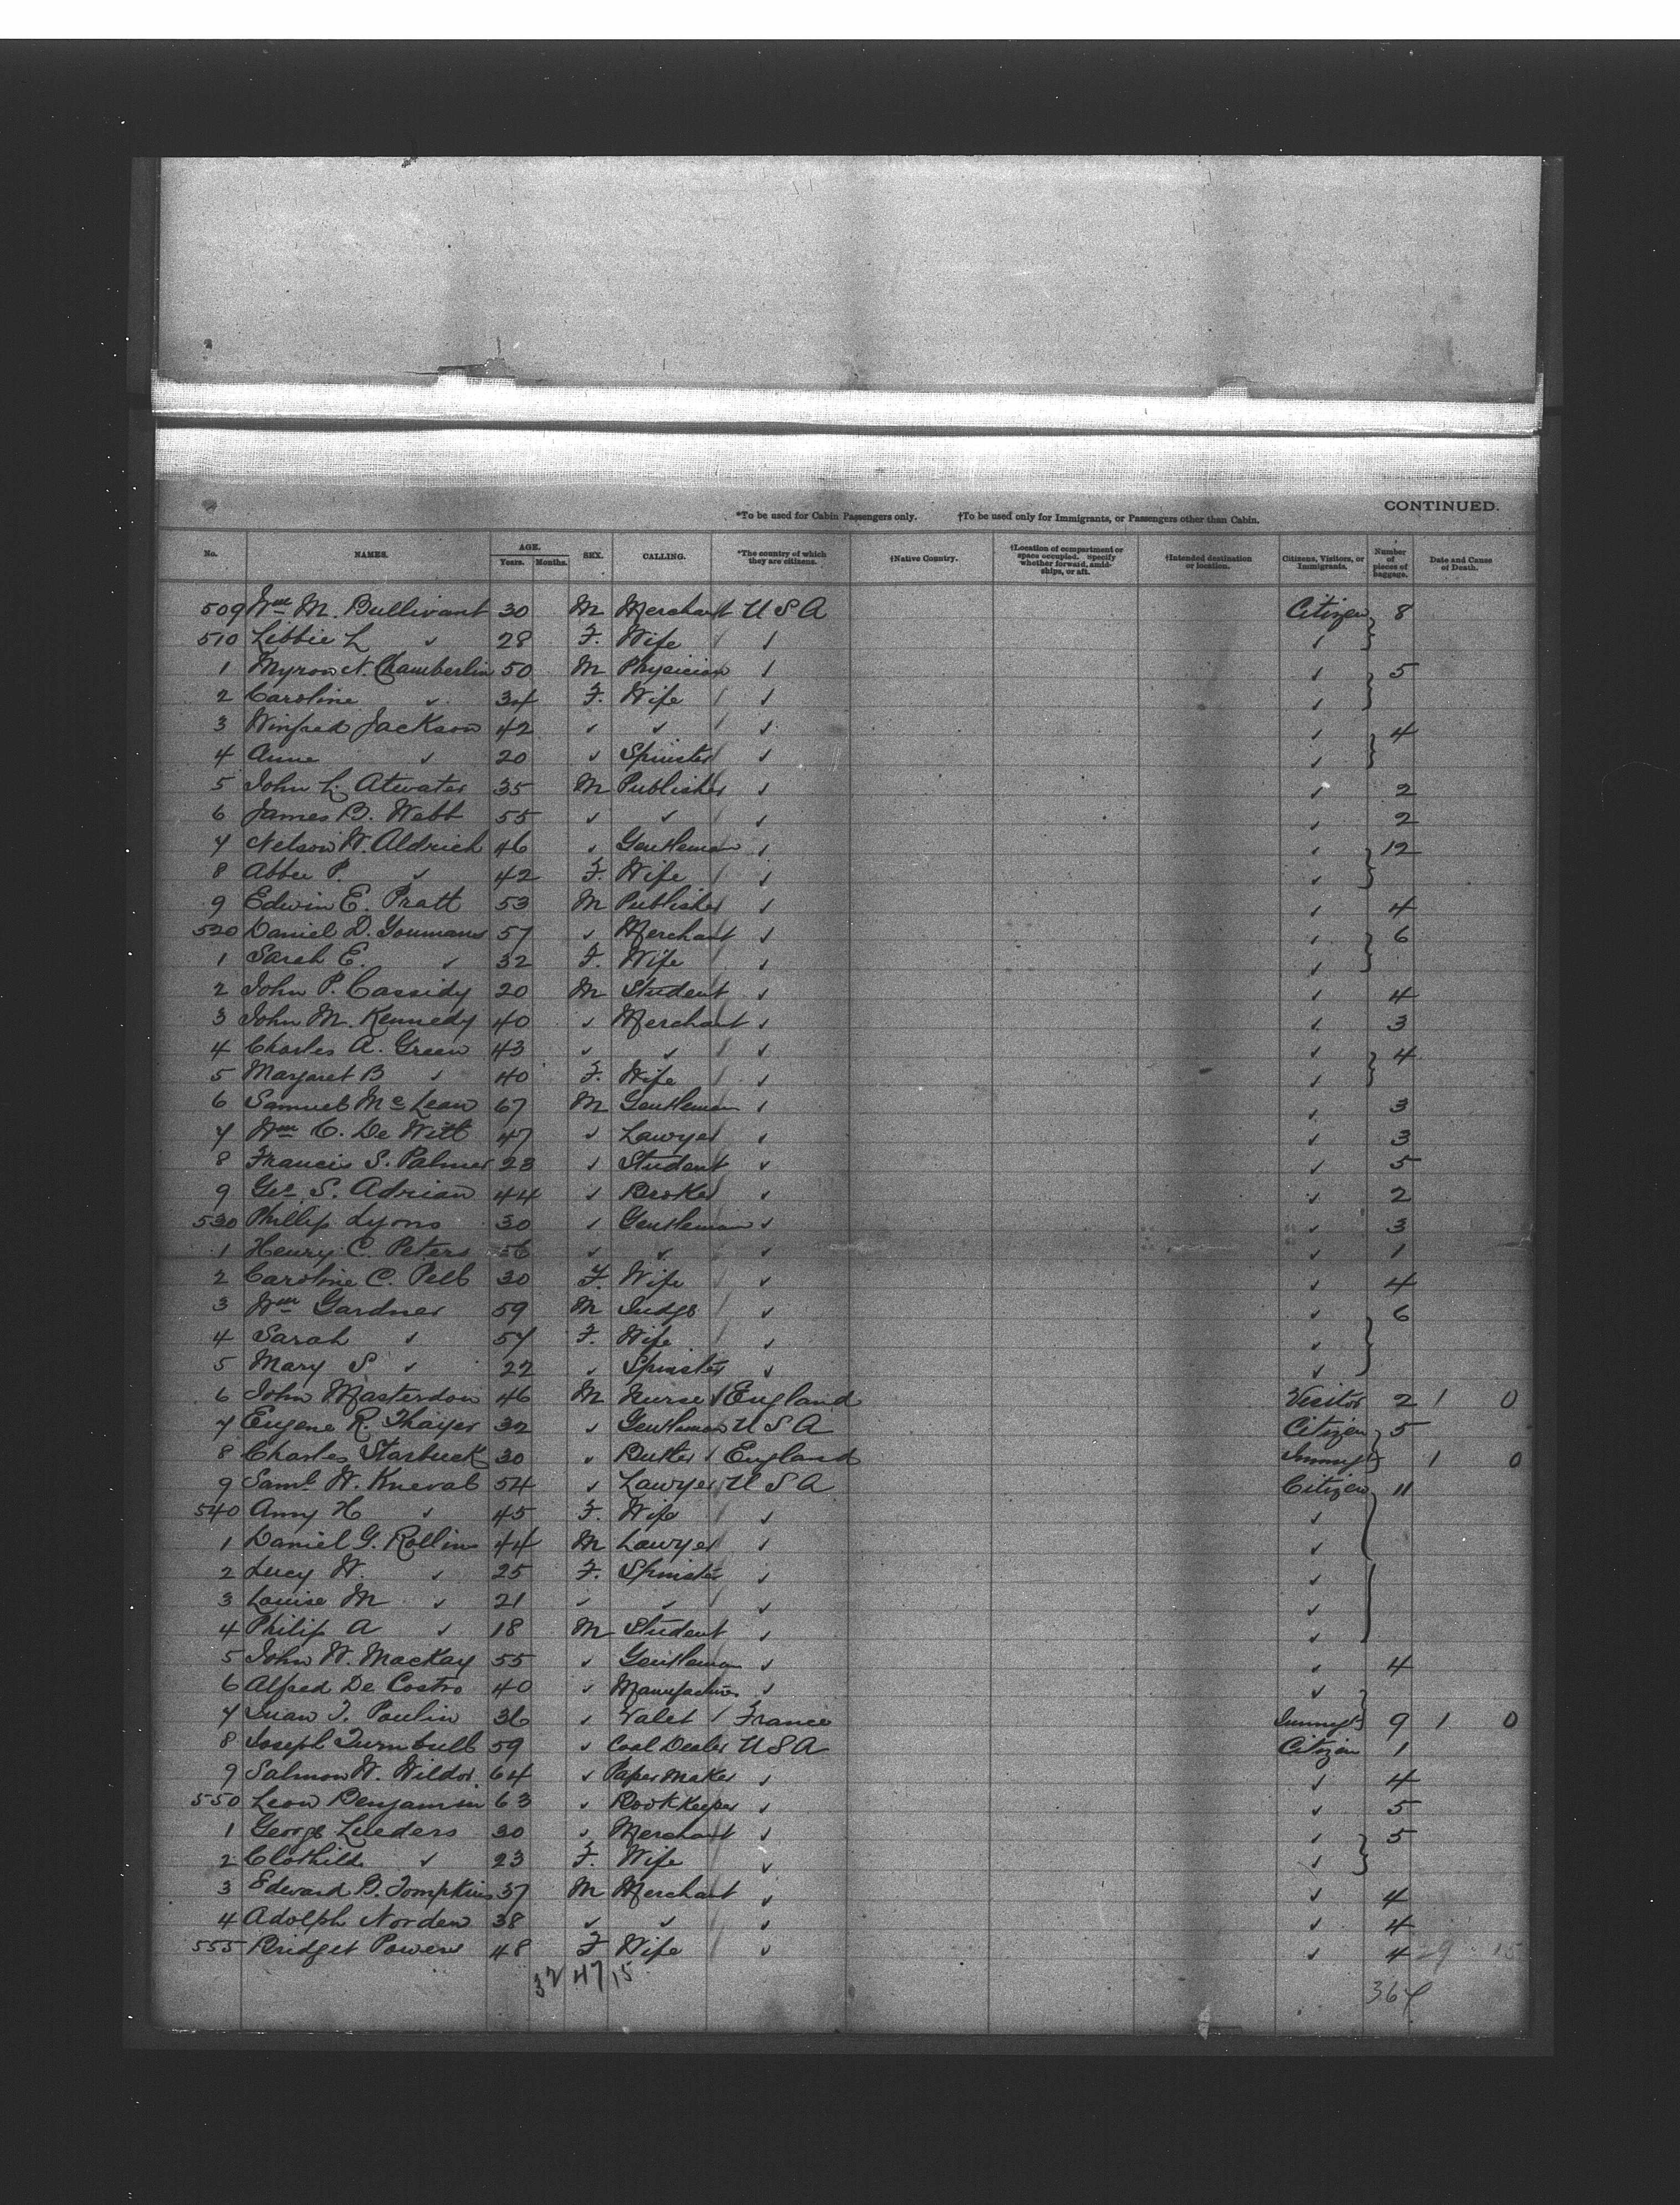 CONTINUED.
*To be used for Cabin Passengers only. †To be used only for Immigrants, or Passengers other than Cabin.
No. NAMES. AGE. Years. Months. SEX. CALLING. *The country of which they are citizens. †Native Country. †Location of compartment or space occupied. Specify whether forward, amidships, or aft. †Intended destination or location. Citizens, Visitors, or Immigrants. Number of pieces of baggage. Date and Cause of Death.
509 Wm M. Bullivant 30 M Merchant U S A Citizen 8
510 Libbie L ✓ 28 F. Wife / /
1 Myron N. Chamberlin 50 M Physician / ✓ 5
2 Caroline ✓ 34 F. Wife / ✓
3 Winfred Jackson 42 ✓ ✓ ✓ ✓ 4
4 Anne ✓ 20 ✓ Spinster ✓ ✓
5 John L. Atwater 35 M Publisher ✓ ✓ 2
6 James B. Webb 55 ✓ ✓ ✓ ✓ 2
7 Nelson W. Aldrich 46 ✓ Gentleman ✓ ✓ 12
8 Abbee P. ✓ 42 F. Wife ✓ ✓
9 Edwin E. Pratt 53 M Publisher ✓ ✓ 4
520 Daniel D. Youmans 57 ✓ Merchant ✓ ✓ 6
1 Sarah E. ✓ 32 F. Wife ✓ ✓
2 John P. Cassidy 20 M Student ✓ ✓ 4
3 John M. Kennedy 40 ✓ Merchant ✓ ✓ 3
4 Charles A. Green 43 ✓ ✓ ✓ ✓ 4
5 Margaret B ✓ 40 F. Wife ✓ ✓
6 Samuel McLean 67 M Gentleman ✓ ✓ 3
7 Wm C. De Witt 47 ✓ Lawyer ✓ ✓ 3
8 Francis S. Palmer 23 ✓ Student ✓ ✓ 5
9 Geo. S. Adrian 44 ✓ Broker ✓ ✓ 2
530 Phillip Lyons 30 ✓ Gentleman ✓ ✓ 3
1 Henry C. Peters 56 ✓ ✓ ✓ ✓ 1
2 Caroline C. Pell 30 F. Wife ✓ ✓ 4
3 Wm Gardner 59 M Judge ✓ ✓ 6
4 Sarah ✓ 57 F. Wife ✓ ✓
5 Mary S ✓ 22 ✓ Spinster ✓ ✓
6 John Masterdon 46 M Nurse England Visitor 2 1 0
7 Eugene R. Thayer 32 ✓ Gentleman U S A Citizen 5
8 Charles Starbuck 30 ✓ Butler England Immgt 1 0
9 Saml. W. Kneval 54 ✓ Lawyer U S A Citizen 11
540 Amy H ✓ 45 F. Wife ✓ ✓
1 Daniel G. Rollins 44 M Lawyer ✓ ✓
2 Lucy W. ✓ 25 F. Spinster ✓ ✓
3 Louise M ✓ 21 ✓ ✓ ✓ ✓
4 Philip A ✓ 18 M Student ✓ ✓
5 John W. Mackay 55 ✓ Gentleman ✓ ✓ 4
6 Alfred De Castro 40 ✓ Manufacturer ✓ ✓
7 Juan T. Paulin 36 ✓ Valet France Immgt 9 1 0
8 Joseph Turnbull 59 ✓ Coal Dealer U S A Citizen 1
9 Salmon W. Wilder 64 ✓ Paper Maker ✓ ✓ 4
550 Leon Benjamin 63 ✓ Bookkeeper ✓ ✓ 5
1 George Lueders 30 ✓ Merchant ✓ ✓ 5
2 Clothilde ✓ 23 F. Wife ✓ ✓
3 Edward B. Tompkins 37 M Merchant ✓ ✓ 4
4 Adolph Norden 38 ✓ ✓ ✓ ✓ 4
555 Bridget Powers 48 F Wife ✓ ✓ 4 29 15
32 47 15
364